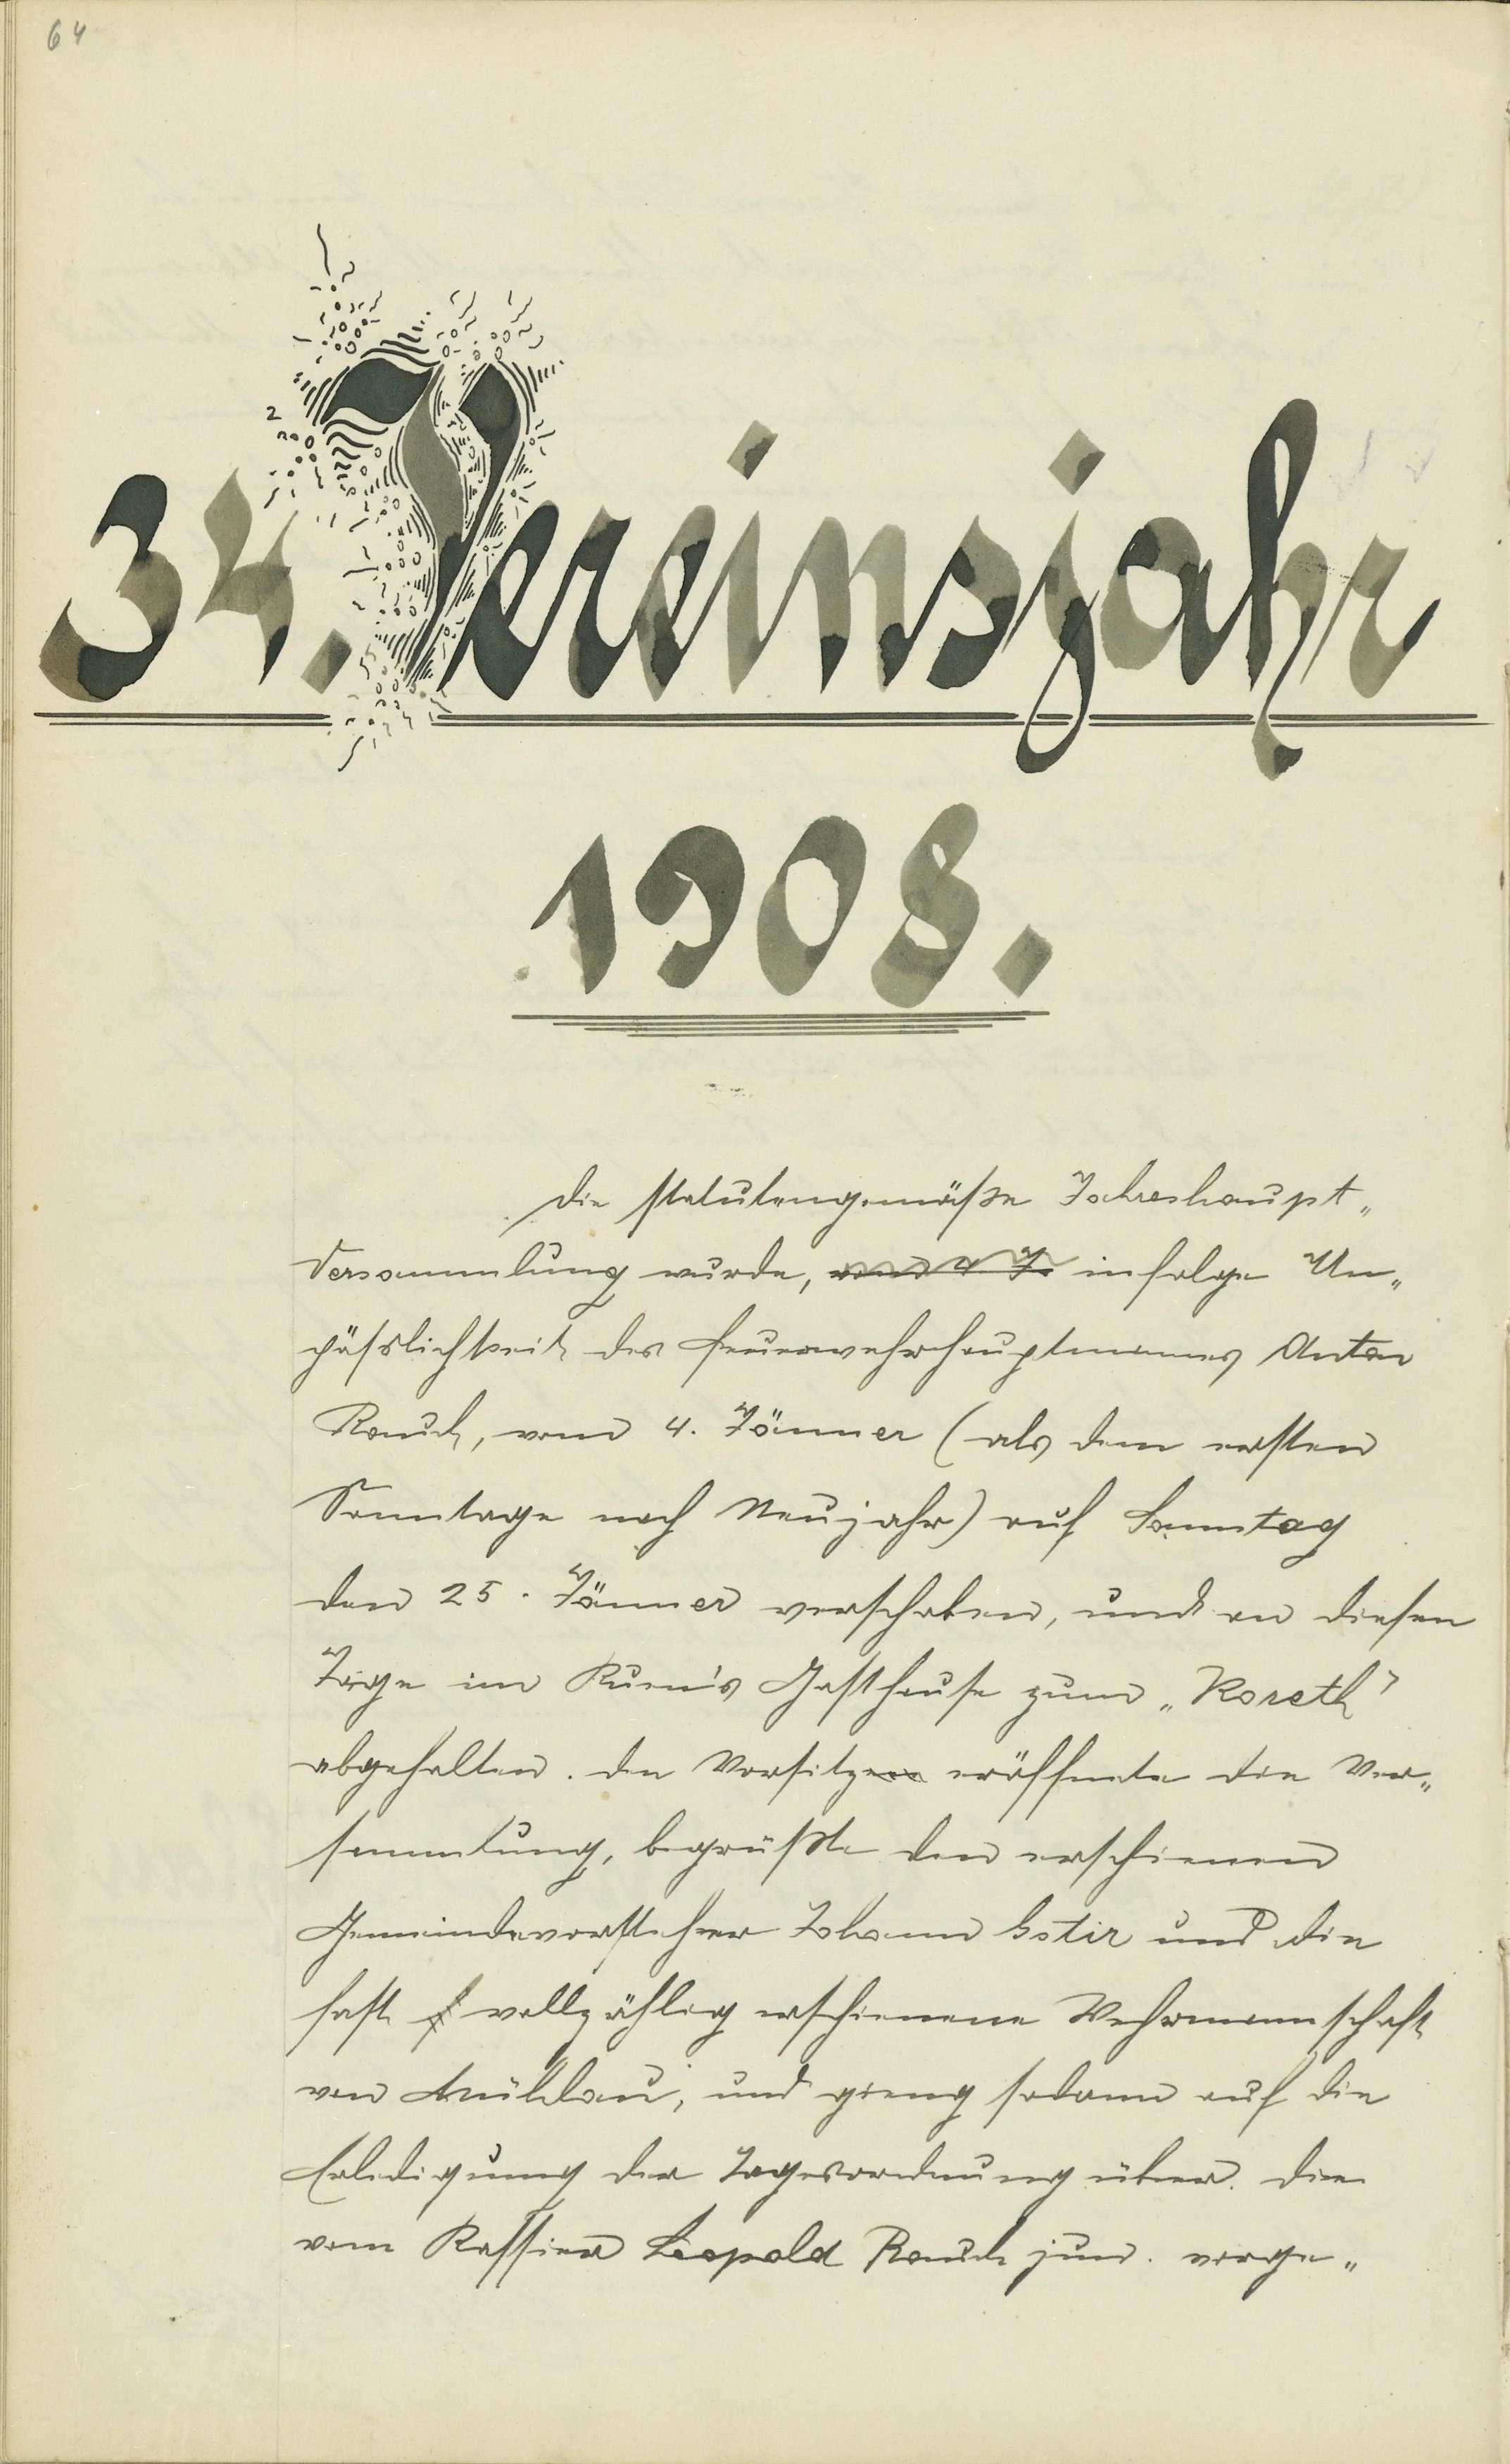 64
34. Vereinsjahr
1908.
Die statutengemäße Jahreshaupt„
Versammlung wurde, infolge Un„
päßlichkeit des Feuerwehrhauptmannes Anton
Rauch, vom 4. Jänner (als dem ersten
Sonntage nach Neujahr) auf Sonntag
den 25. Jänner verschoben, und an diesen
Tage im Gasthause zum „Koreth"
abgehalten. Der Vorsitz eröffnete die Ver„
sammlung, begrüßte den erschienen
Gemeindevorsteher Johann und die
fast vollzählig erschienene Wehrmannschaft
von Mühlau, und gieng sodann auf die
Erledigung der Tagesordnung über. Die
vom Kassier Leopold Rauch jun. vorge„